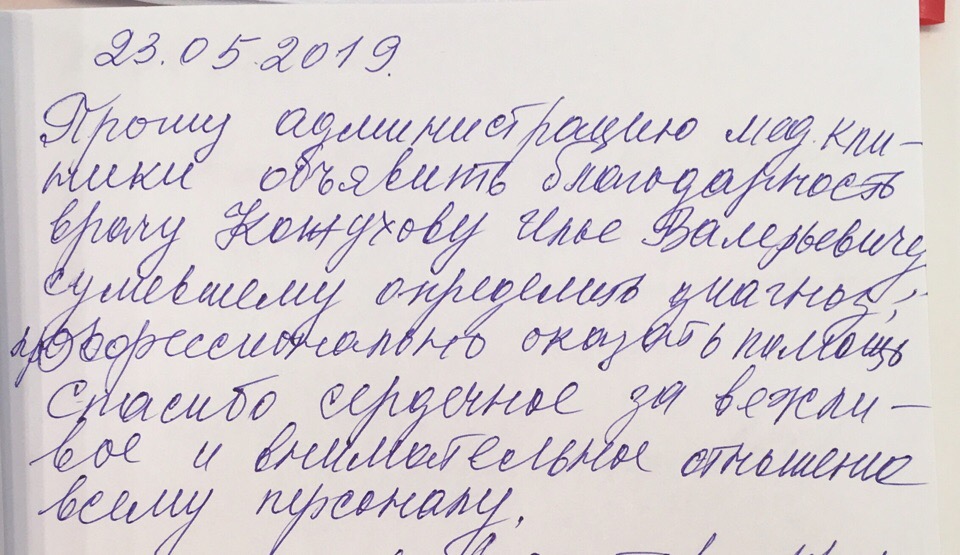 23.05.2019.
Прошу администрацию мед. кли-
ники объявить благодарность
врачу Кожухову Илье Валерьевичу,
сумевшему определить диагноз,
профессионально оказать помощь
Спасибо сердечное за вежли-
вое и внимательное отношение
всему персоналу.